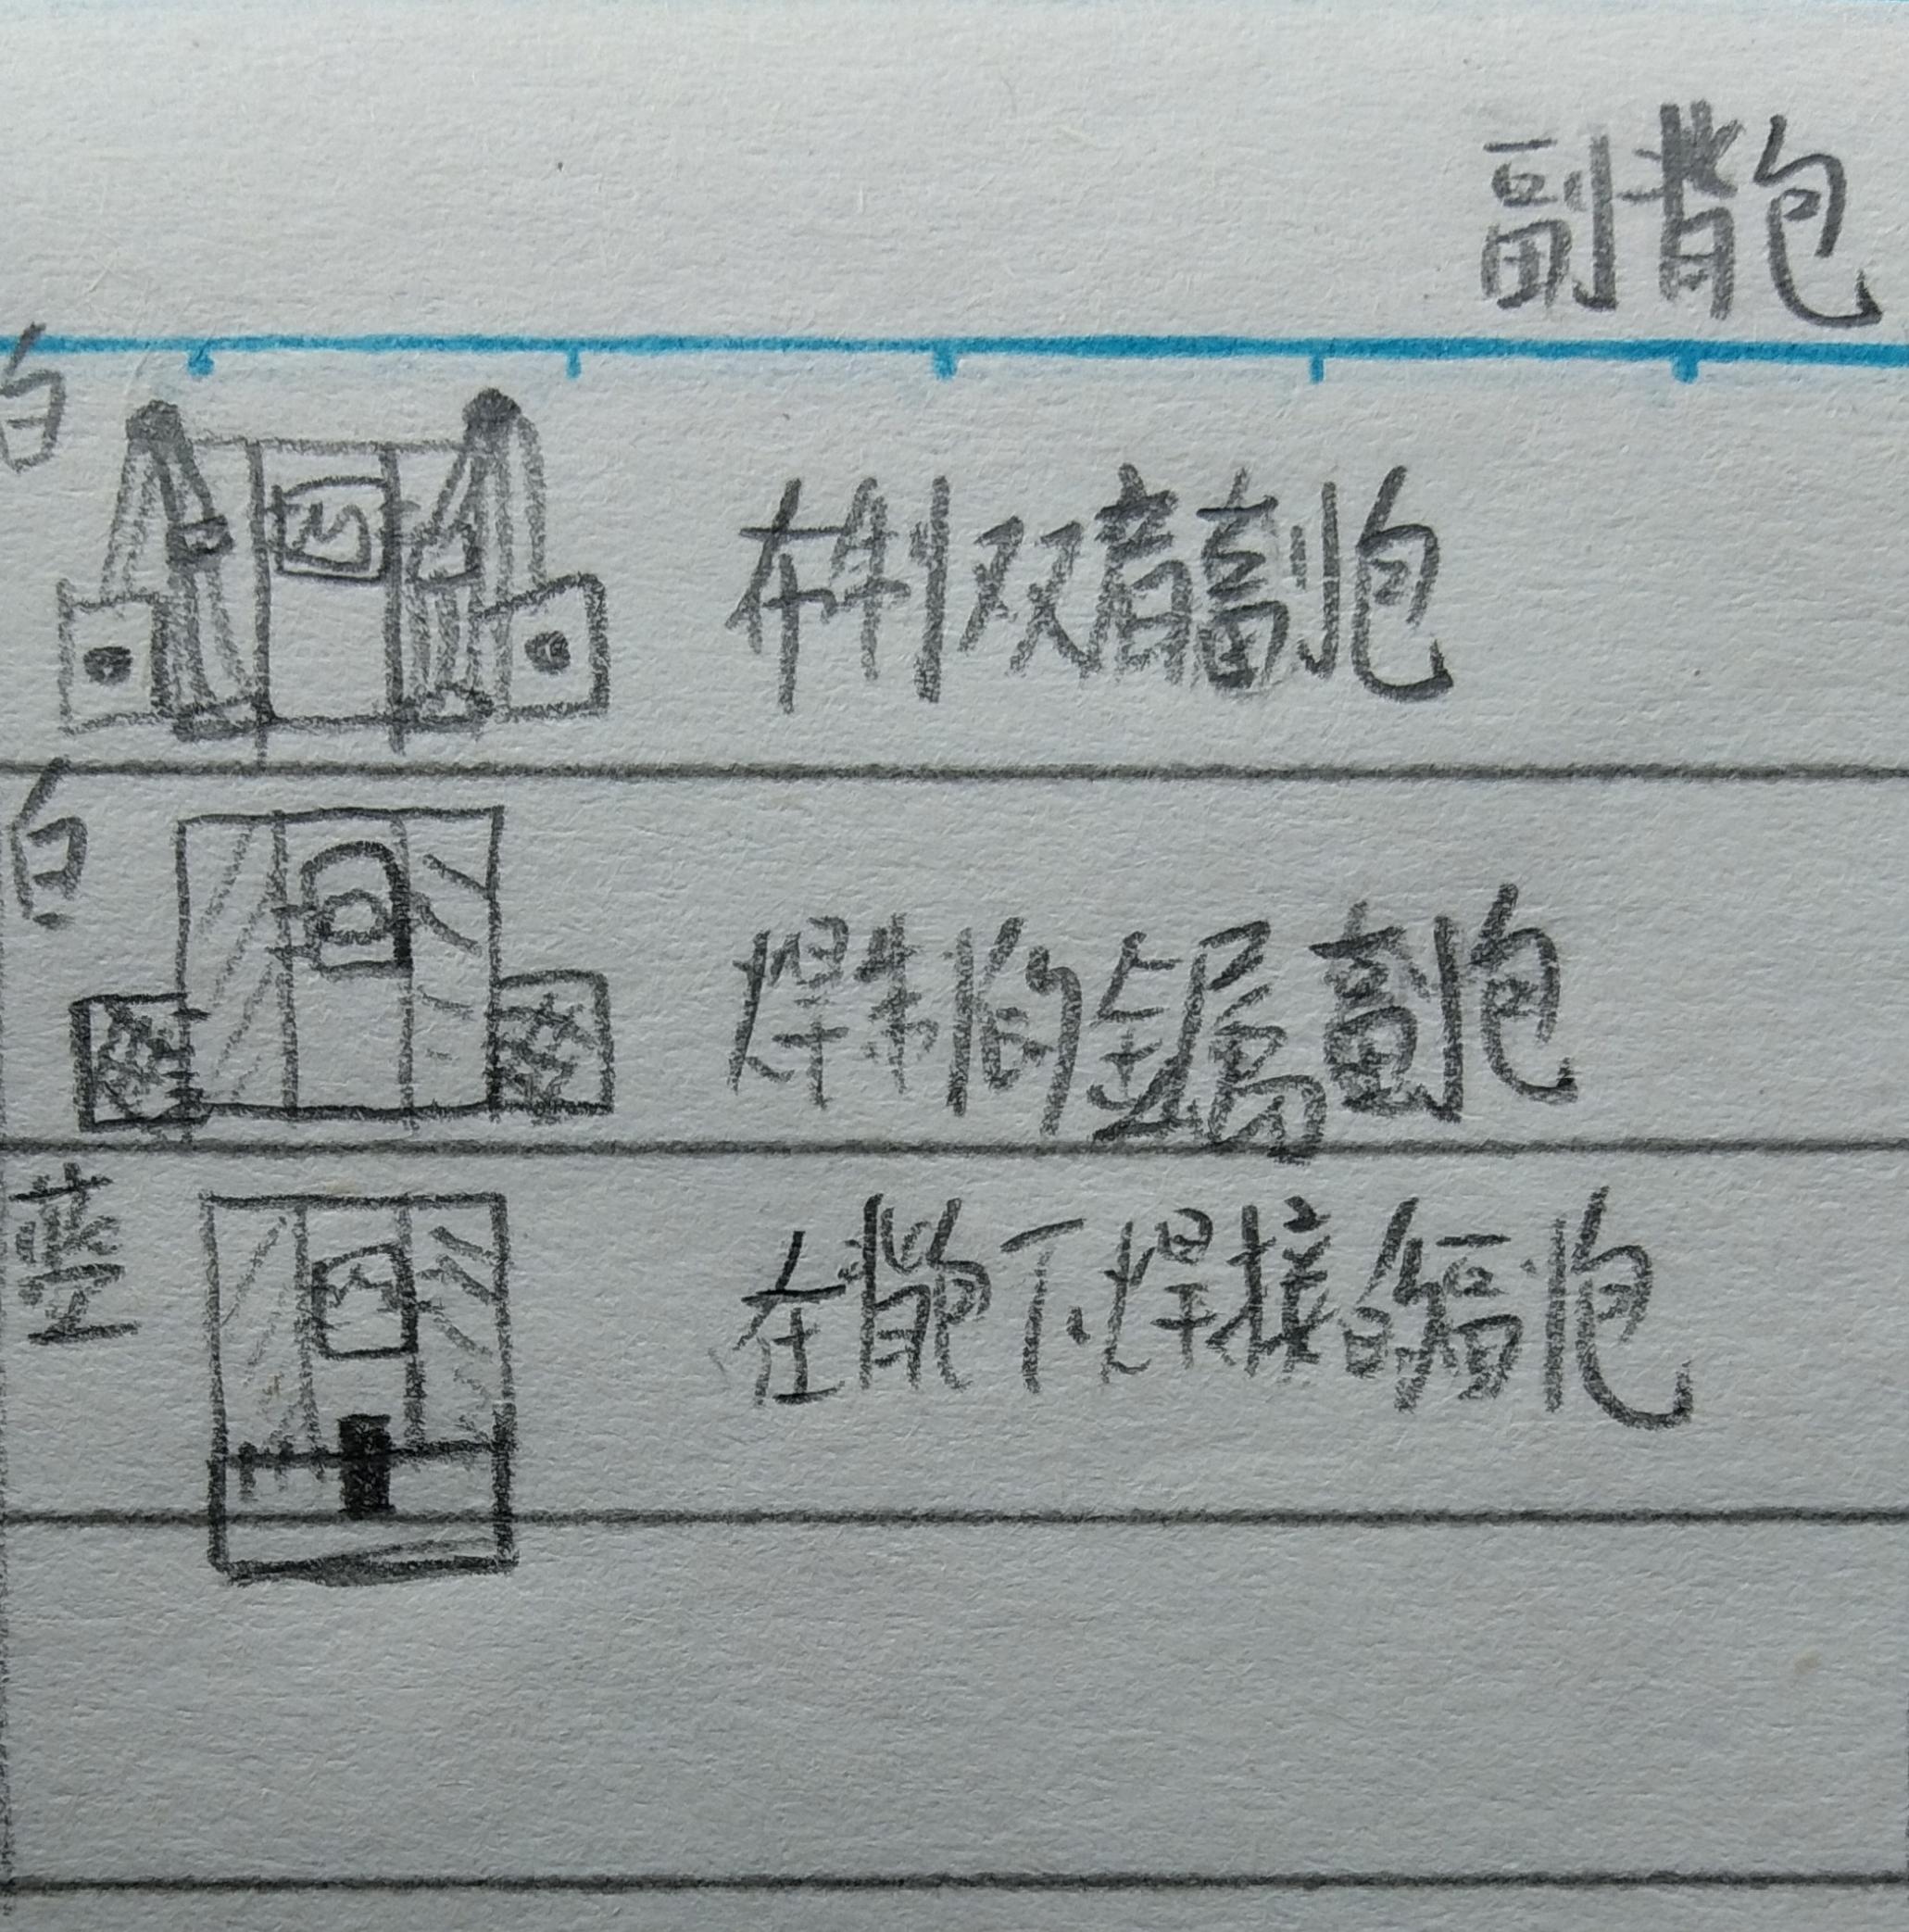 副背包
白
布制双肩副包
白
焊制的金属副包
蓝
在背包下焊接的副包